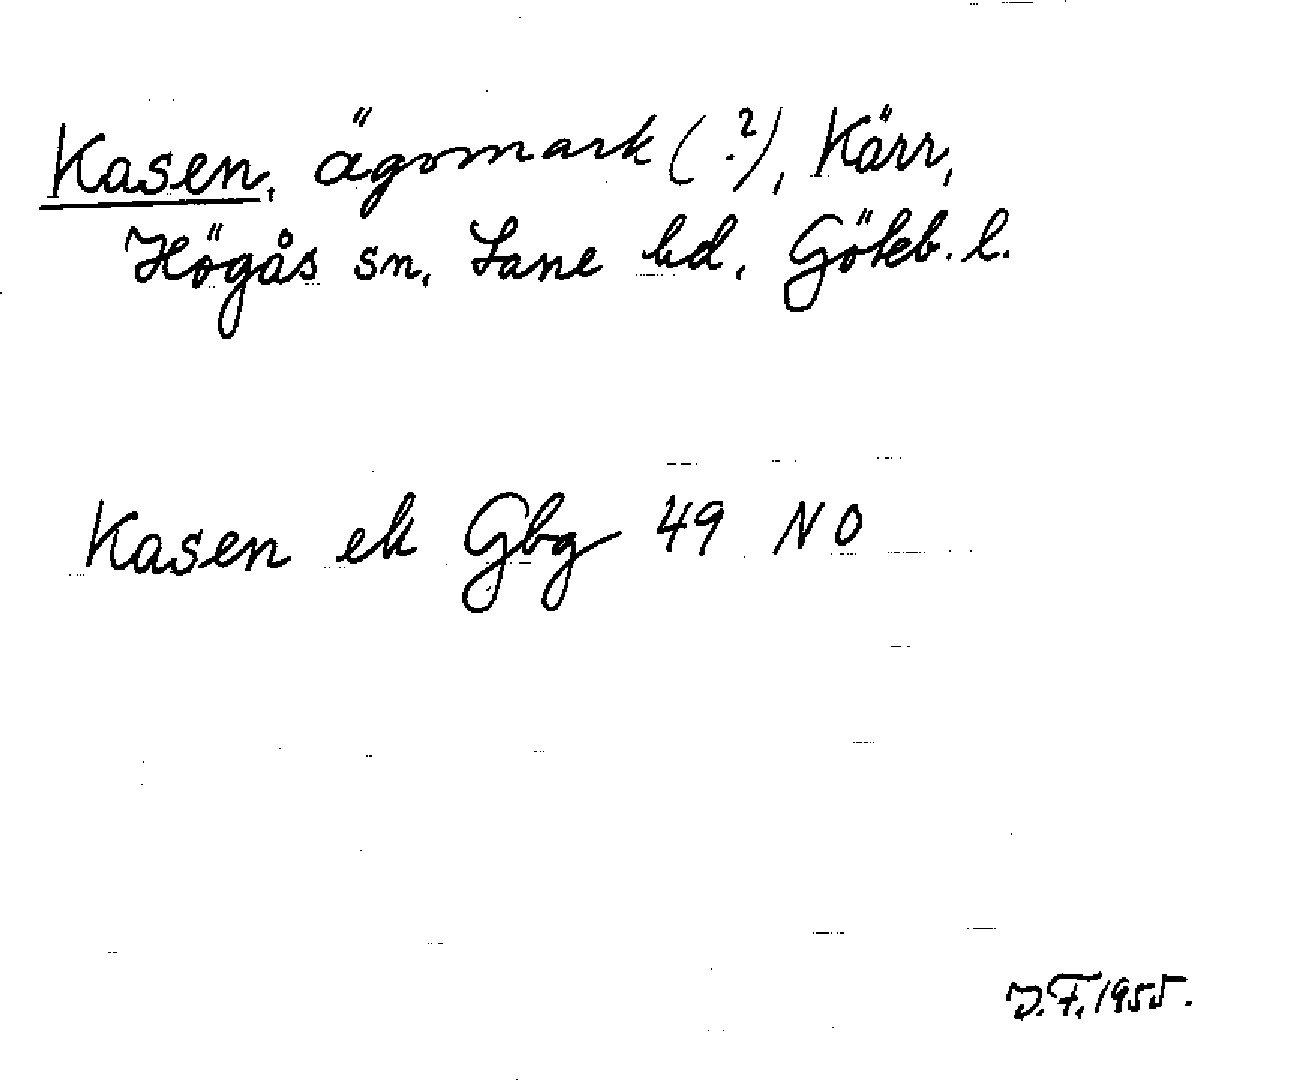 Kasen, ägomark (?), Kärr,
Högås sn, Lane hd, Göteb. l.
Kasen ek Gbg 49 NO
J.F. 1955.